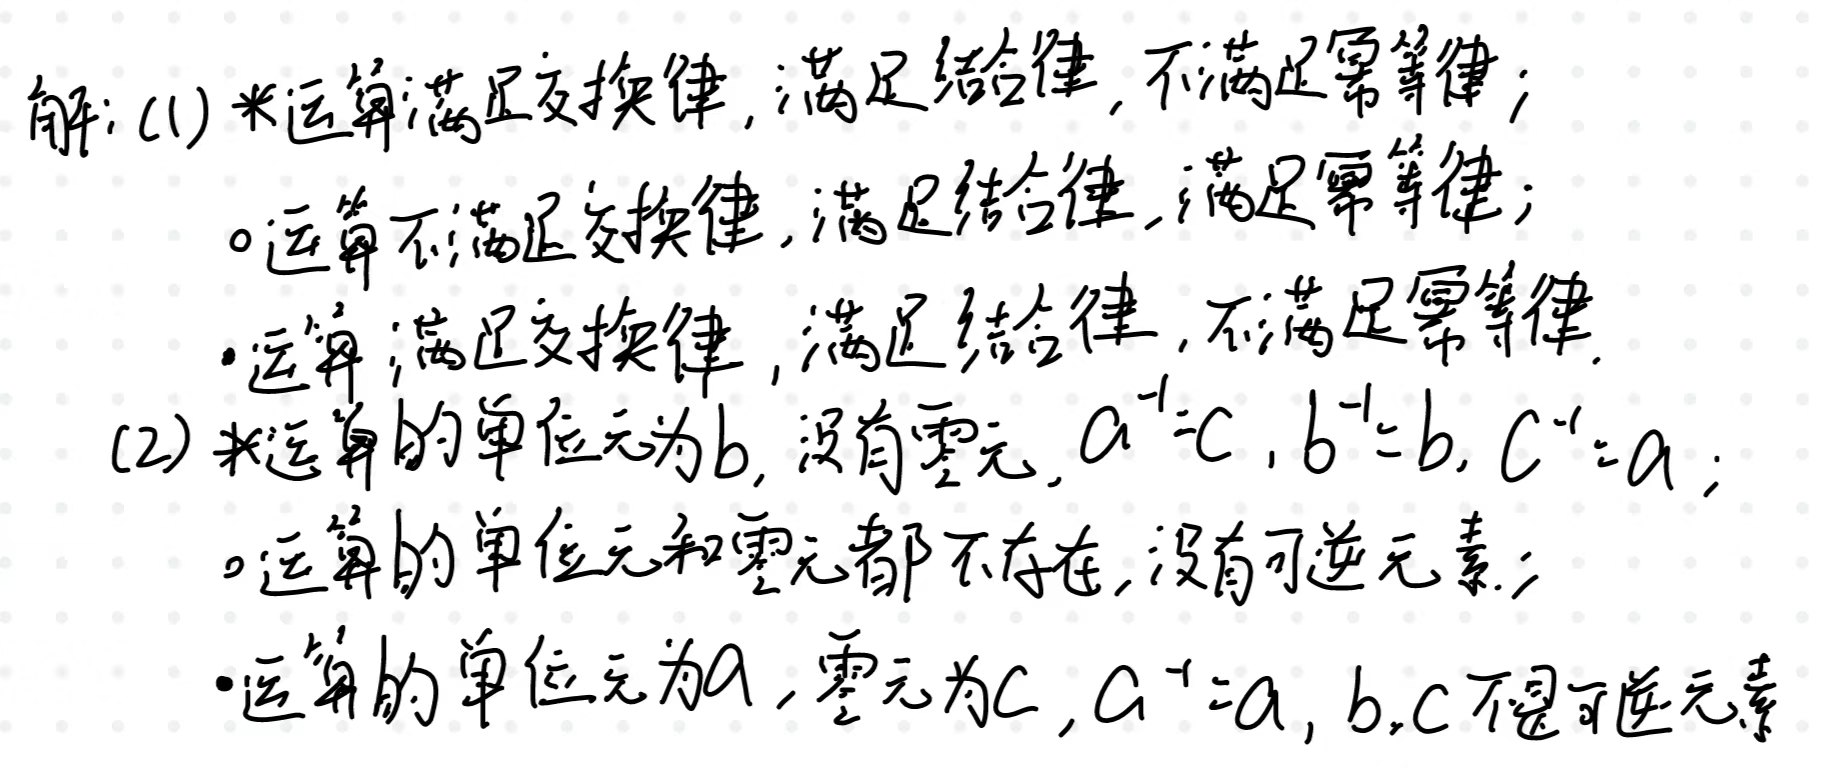 解:(1) *运算满足交换律,满足结合律,不满足幂等律;
∘运算不满足交换律,满足结合律,满足幂等律;
•运算满足交换律,满足结合律,不满足幂等律.
(2) *运算的单位元为b,没有零元,a⁻¹=c,b⁻¹=b,c⁻¹=a;
∘运算的单位元和零元都不存在,没有可逆元素;
•运算的单位元为a,零元为c,a⁻¹=a,b,c不是可逆元素